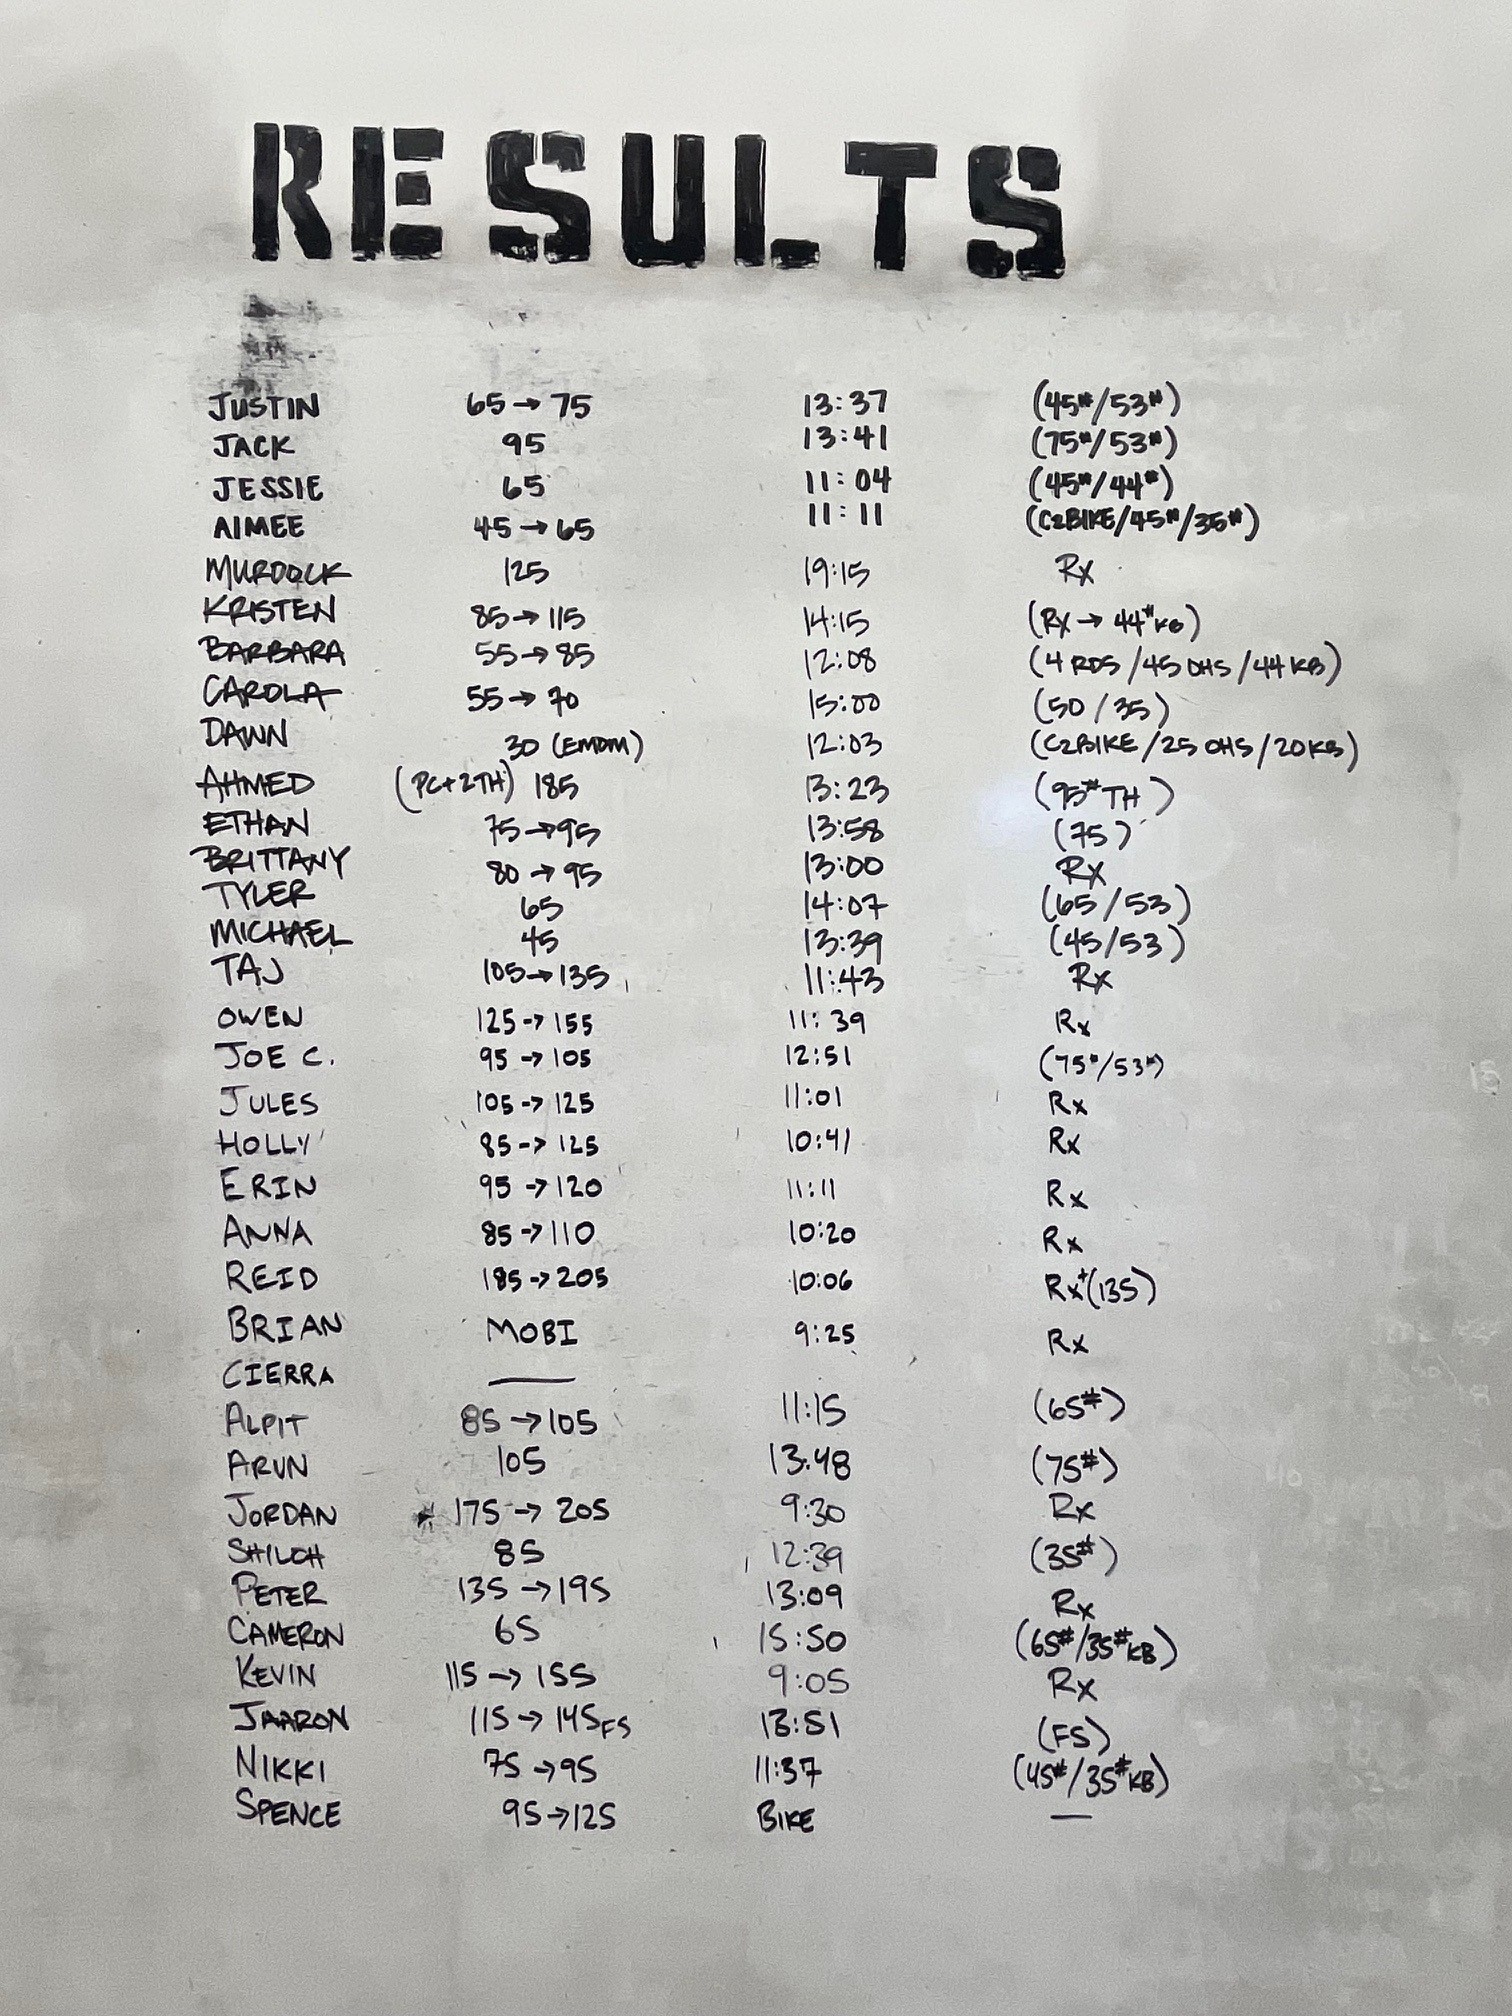 RESULTS
JUSTIN 65→75 13:37 (45#/53#)
JACK 95 13:41 (75#/53#)
JESSIE 65 11:04 (45#/44#)
AIMEE 45→65 11:11 (C2BIKE/45#/35#)
MURDOCK 125 19:15 Rx
KRISTEN 85→115 14:15 (Rx→44#KB)
BARBARA 55→85 12:08 (4 RDS/45 OHS/44 KB)
CAROLA 55→70 15:00 (50/35)
DAWN 30 (EMOM) 12:03 (C2BIKE/25 OHS/20KB)
AHMED (PC+2TH) 185 13:23 (95# TH)
ETHAN 75→95 13:58 (75)
BRITTANY 80→95 13:00 Rx
TYLER 65 14:07 (65/53)
MICHAEL 45 13:39 (45/53)
TAJ 105→135 11:43 Rx
OWEN 125→155 11:39 Rx
JOE C. 95→105 12:51 (75#/53#)
JULES 105→125 11:01 Rx
HOLLY 85→125 10:41 Rx
ERIN 95→120 11:11 Rx
ANNA 85→110 10:20 Rx
REID 185→205 10:06 Rx+(135)
BRIAN MOBI 9:25 Rx
CIERRA —
ALPIT 85→105 11:15 (65#)
ARUN 105 13:48 (75#)
JORDAN * 175→205 9:30 Rx
SHILOH 85 12:39 (35#)
PETER 135→195 13:09 Rx
CAMERON 65 15:50 (65#/35#KB)
KEVIN 115→155 9:05 Rx
JAARON 115→145FS 13:51 (FS)
NIKKI 75→95 11:37 (45#/35#KB)
SPENCE 95→125 BIKE —